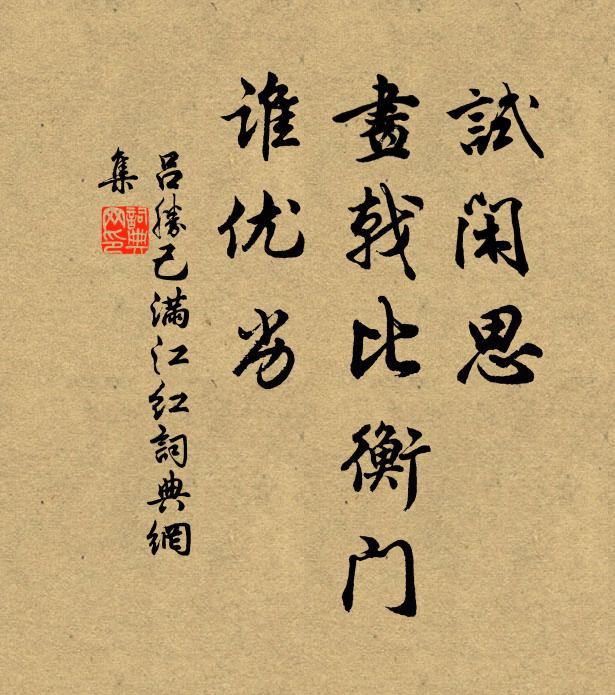 試閑思
畫戟比衡门
谁优劣
吕勝己满江红詞典網
集
詞典
网印